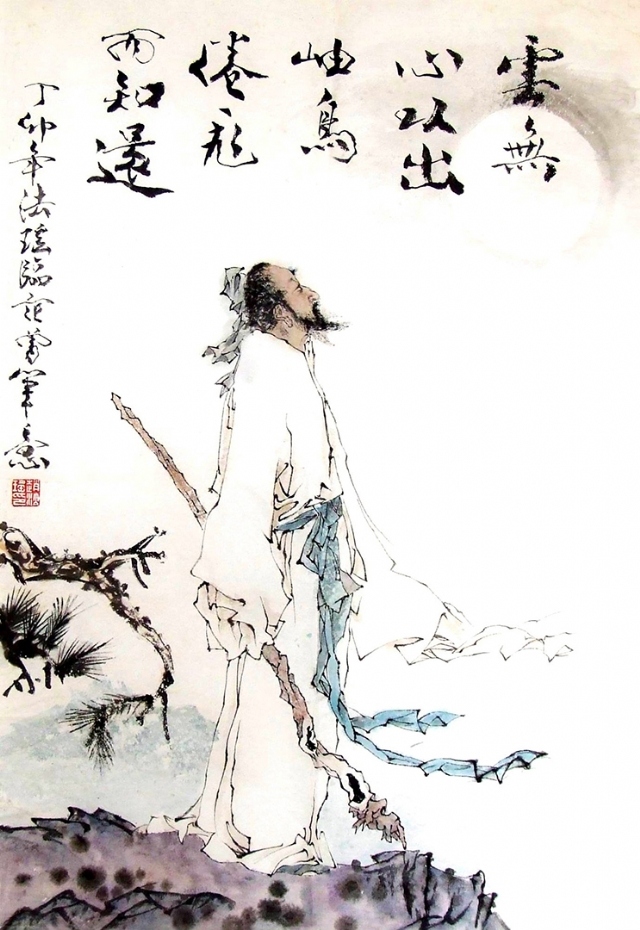 雲無
心以出
岫鳥
倦飛
而知還
丁卯年法瑤臨范曾筆意